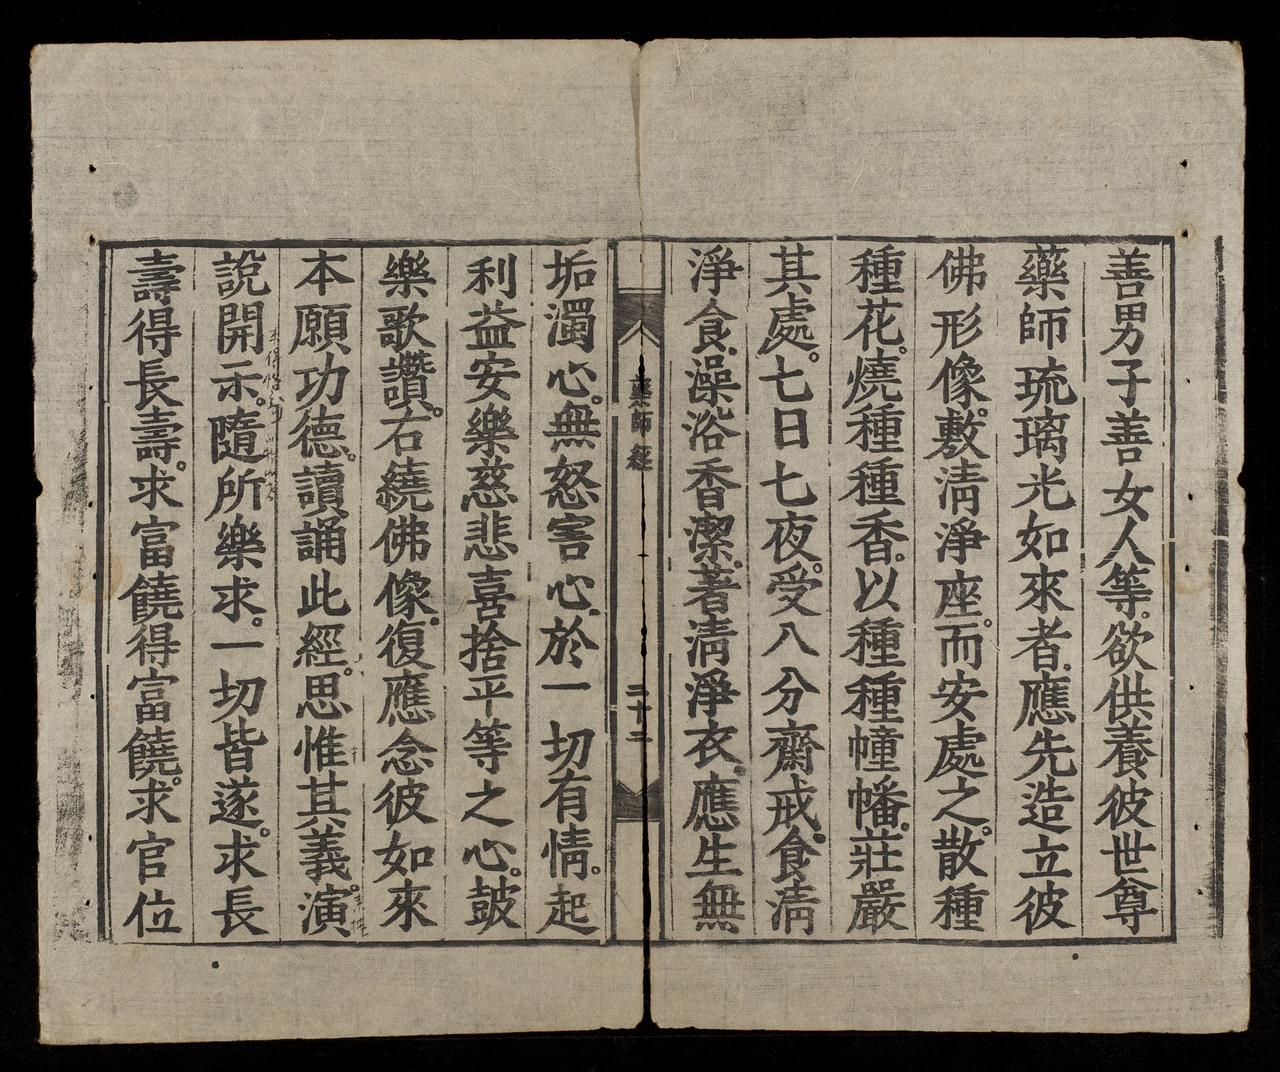 善男子善女人等。欲供養彼世尊
藥師琉璃光如來者。應先造立彼
佛形像。敷淸淨座。而安處之。散種
種花。燒種種香。以種種幢幡。莊嚴
其處。七日七夜。受八分齋戒。食淸
淨食。澡浴香潔。著淸淨衣。應生無
藥師經
二十二
垢濁心。無怒害心。於一切有情。起
利益安樂慈悲喜捨平等之心。鼓
樂歌讚。右繞佛像。復應念彼如來
本願功德。讀誦此經。思惟其義。演
說開示。隨所樂求。一切皆遂。求長
壽得長壽。求富饒得富饒。求官位